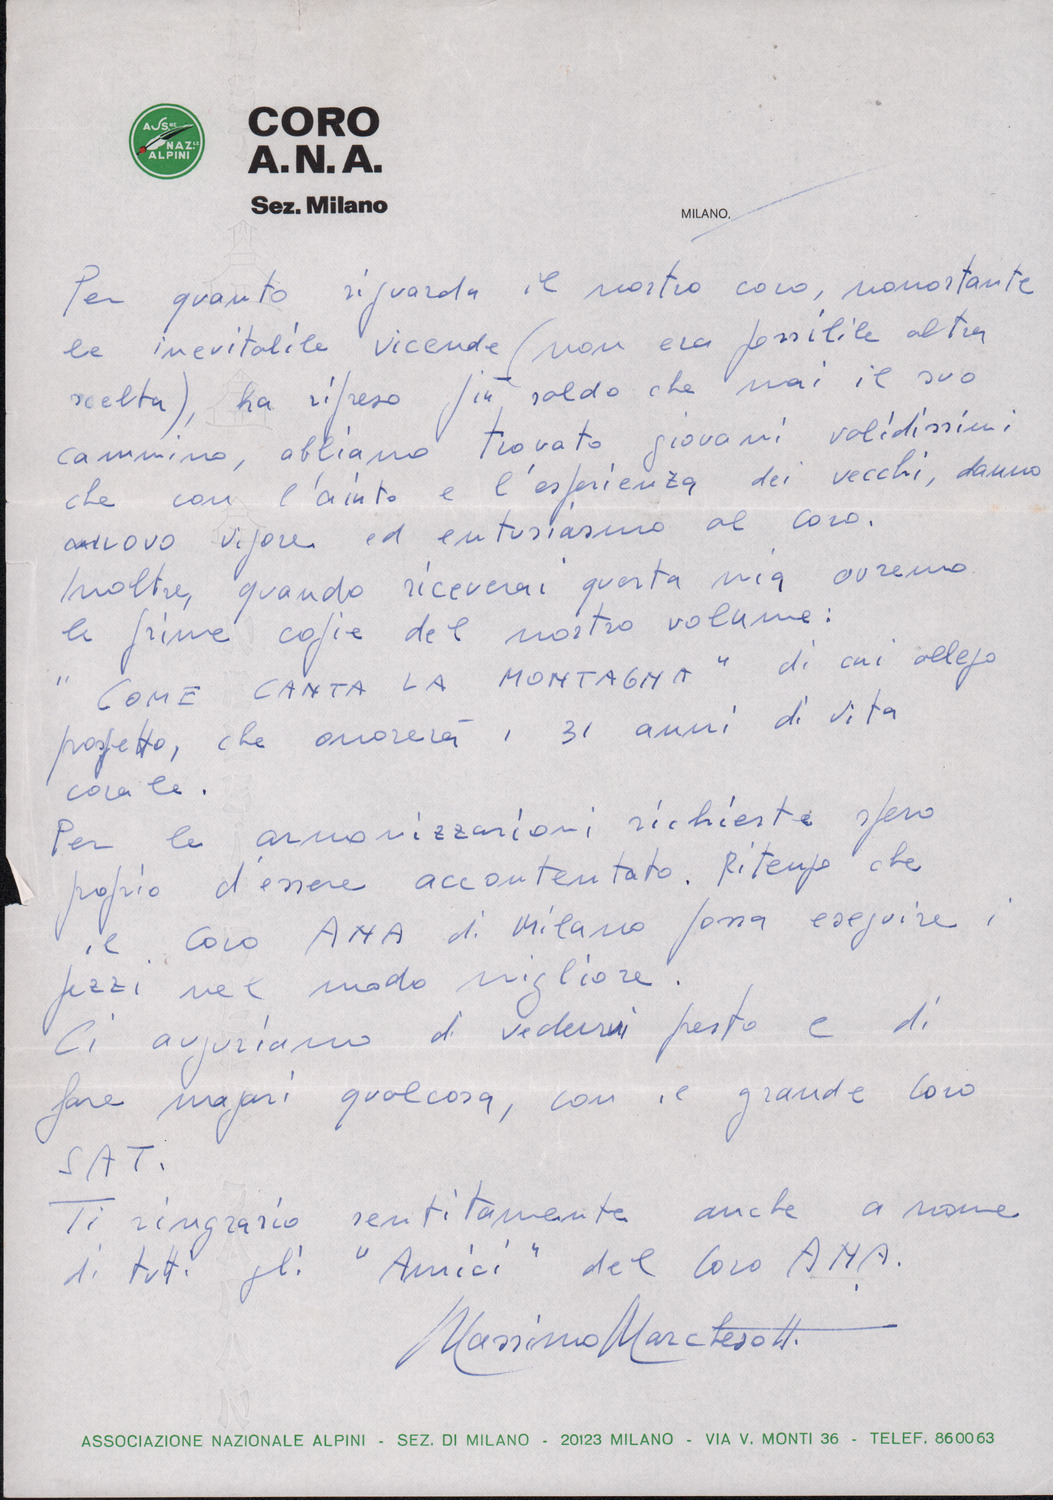 ASS.NE
NAZ.LE
ALPINI
CORO
A.N.A.
Sez. Milano
MILANO,
Per quanto riguarda il nostro coro, nonostante
le inevitabile vicende (non era possibile altra
scelta), ha ripreso più saldo che mai il suo
cammino, abbiamo trovato giovani validissimi
che con l'aiuto e l'esperienza dei vecchi, danno
nuovo vigore ed entusiasmo al coro.
Inoltre, quando riceverai questa mia avremo
le prime copie del nostro volume:
"COME CANTA LA MONTAGNA" di cui allego
prospetto, che onorerà i 31 anni di vita
corale.
Per le armonizzazioni richieste spero
proprio d'essere accontentato. Ritengo che
il Coro ANA di Milano possa eseguire i
pezzi nel modo migliore.
Ci auguriamo di vederci presto e di
fare magari qualcosa, con il grande Coro
SAT.
Ti ringrazio sentitamente anche a nome
di tutti gli "Amici" del Coro ANA.
Massimo Marchesotti
ASSOCIAZIONE NAZIONALE ALPINI - SEZ. DI MILANO - 20123 MILANO - VIA V. MONTI 36 - TELEF. 860063